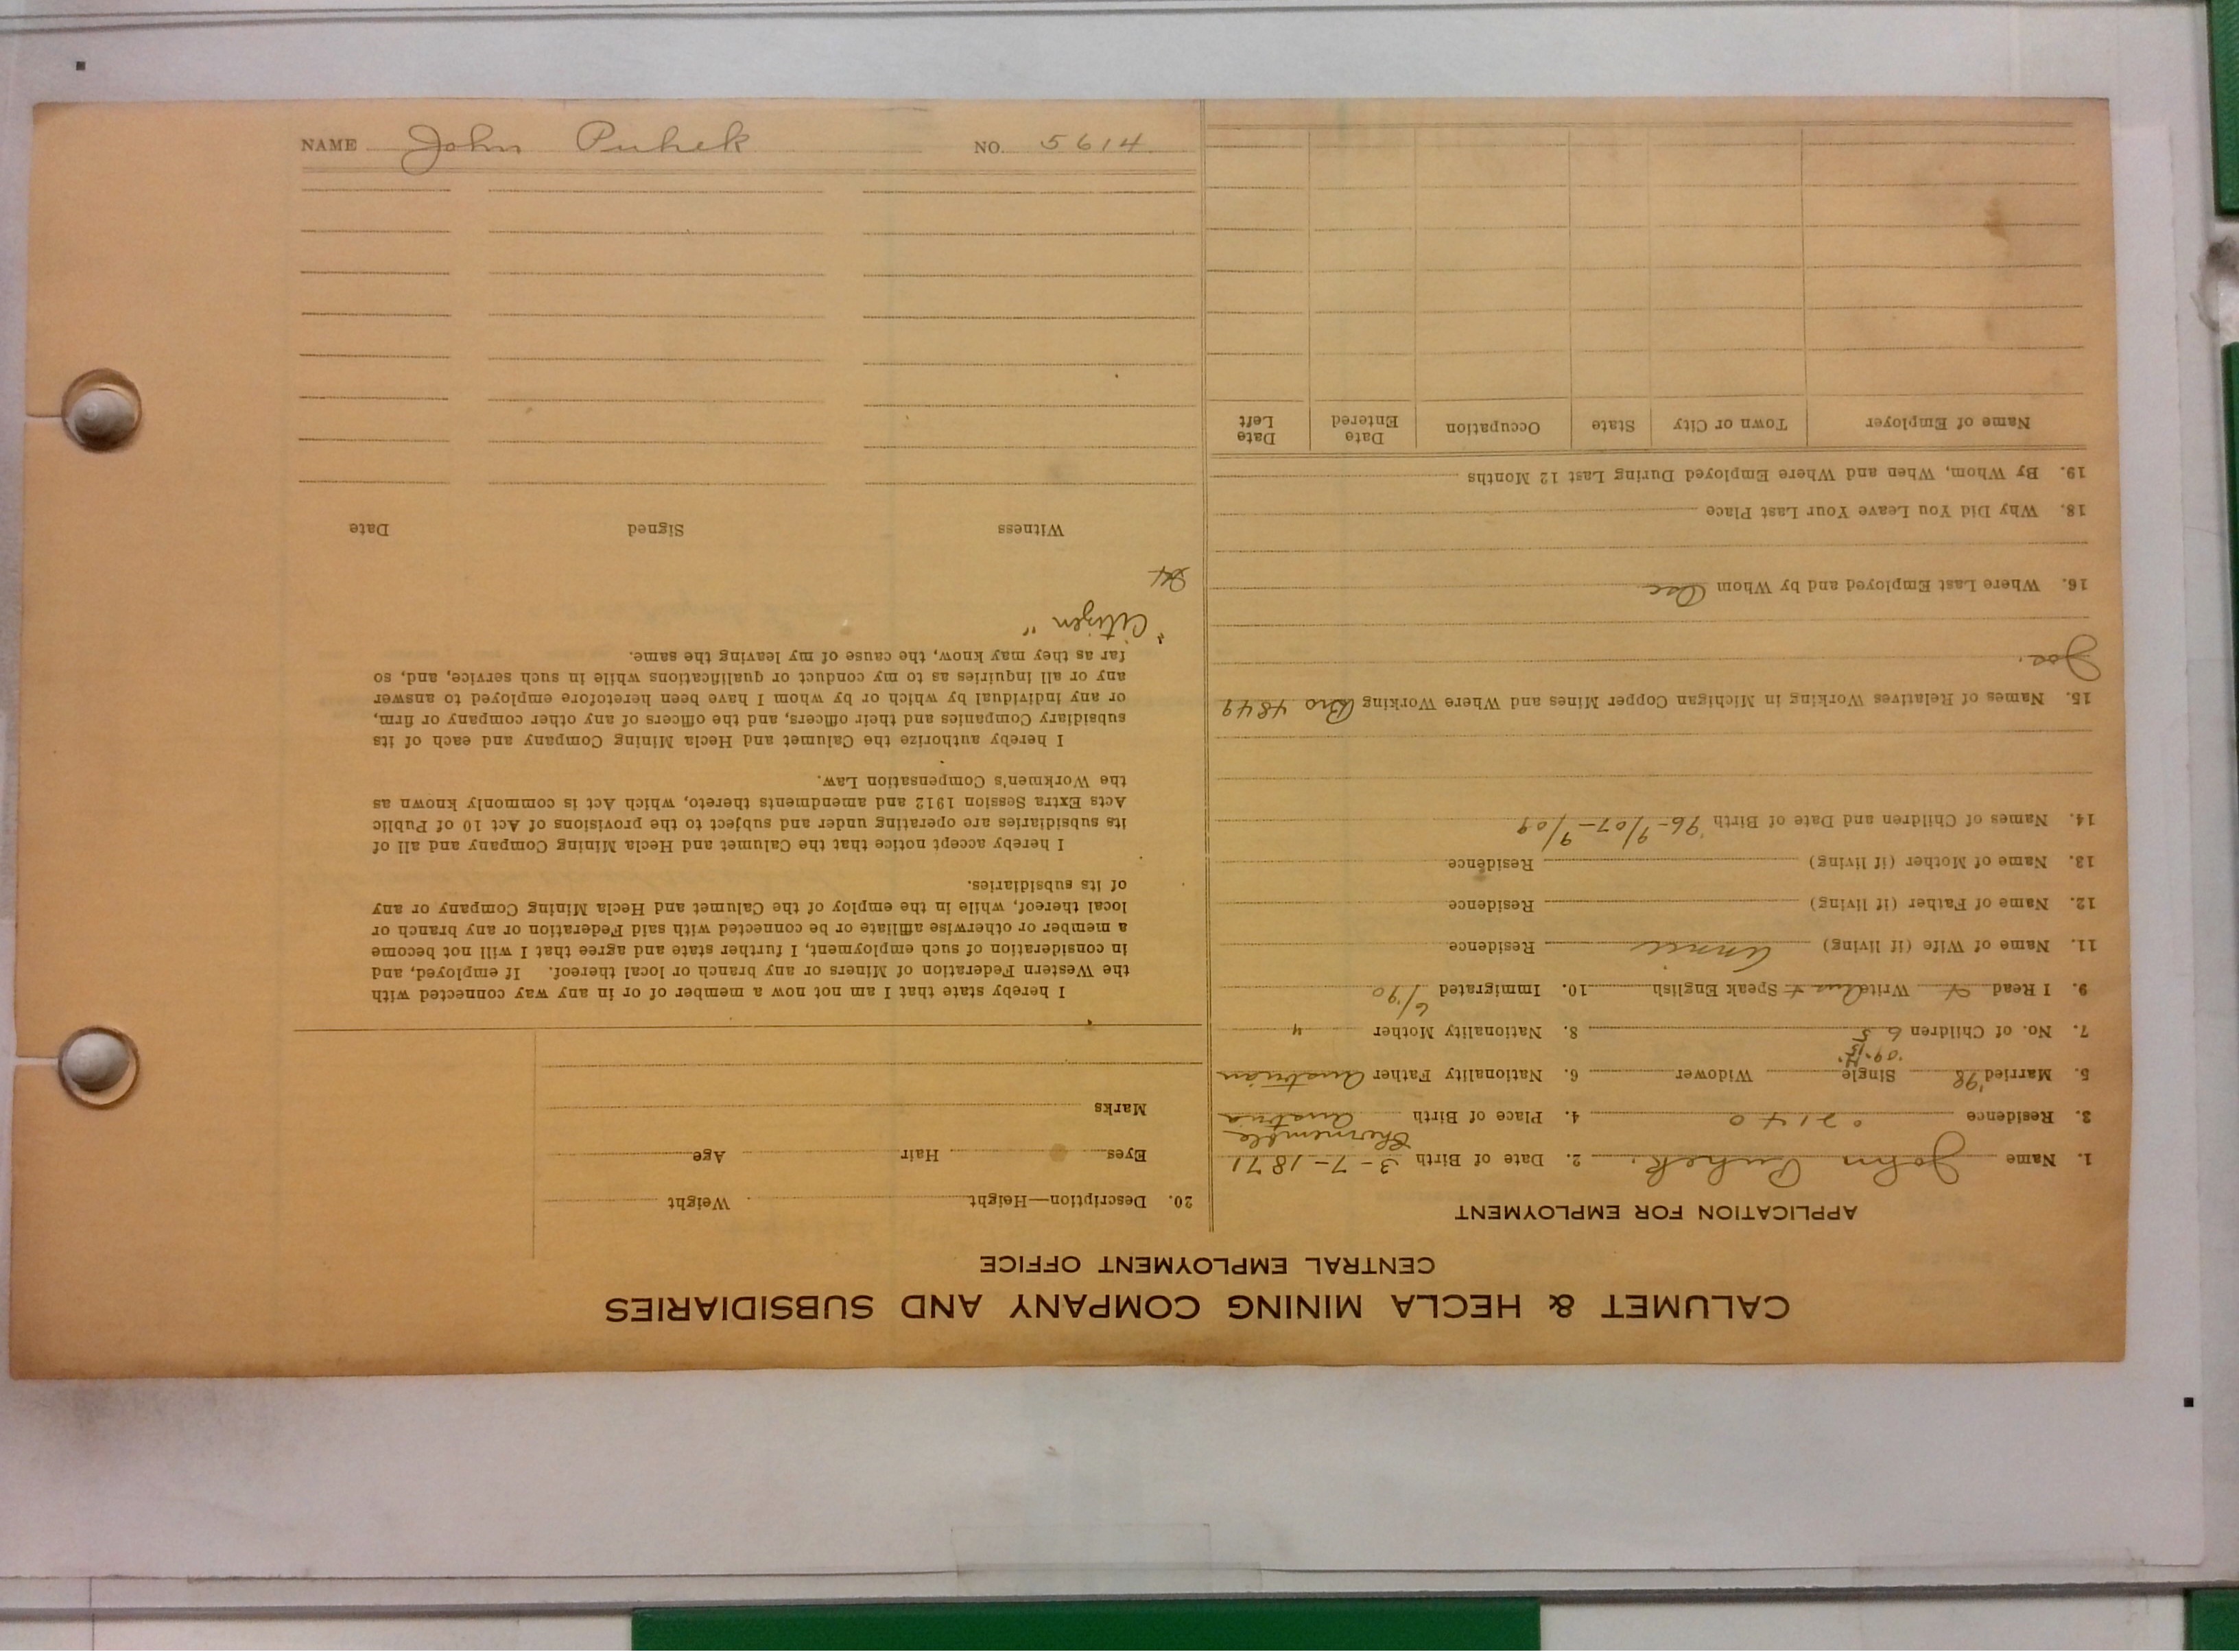 NAME John Puhek NO. 5614
CALUMET & HECLA MINING COMPANY AND SUBSIDIARIES
CENTRAL EMPLOYMENT OFFICE
APPLICATION FOR EMPLOYMENT
1. Name John Puhek. 2. Date of Birth 3-7-1871
Chernemble
3. Residence 2140 4. Place of Birth Austria
5. Married '98 Single Widower 6. Nationality Father Austrian
'09-
7. No. of Children 6 5 8. Nationality Mother "
9. I Read Write Aus + Speak English 10. Immigrated 6/90
11. Name of Wife (if living) Annie Residence
12. Name of Father (if living) Residence
13. Name of Mother (if living) Residence
14. Names of Children and Date of Birth '96- 9/07- 9/09
15. Names of Relatives Working in Michigan Copper Mines and Where Working Bro 4849
Joe.
16. Where Last Employed and by Whom Osc
18. Why Did You Leave Your Last Place
19. By Whom, When and Where Employed During Last 12 Months
Name of Employer Town or City State Occupation Date Entered Date Left
20. Description—Height Weight
Eyes Hair Age
Marks
I hereby state that I am not now a member of or in any way connected with
the Western Federation of Miners or any branch or local thereof. If employed, and
in consideration of such employment, I further state and agree that I will not become
a member or otherwise affiliate or be connected with said Federation or any branch or
local thereof, while in the employ of the Calumet and Hecla Mining Company or any
of its subsidiaries.
I hereby accept notice that the Calumet and Hecla Mining Company and all of
its subsidiaries are operating under and subject to the provisions of Act 10 of Public
Acts Extra Session 1912 and amendments thereto, which Act is commonly known as
the Workmen's Compensation Law.
I hereby authorize the Calumet and Hecla Mining Company and each of its
subsidiary Companies and their officers, and the officers of any other company or firm,
or any individual by which or by whom I have been heretofore employed to answer
any or all inquiries as to my conduct or qualifications while in such service, and, so
far as they may know, the cause of my leaving the same.
"Citizen"
Witness Signed Date